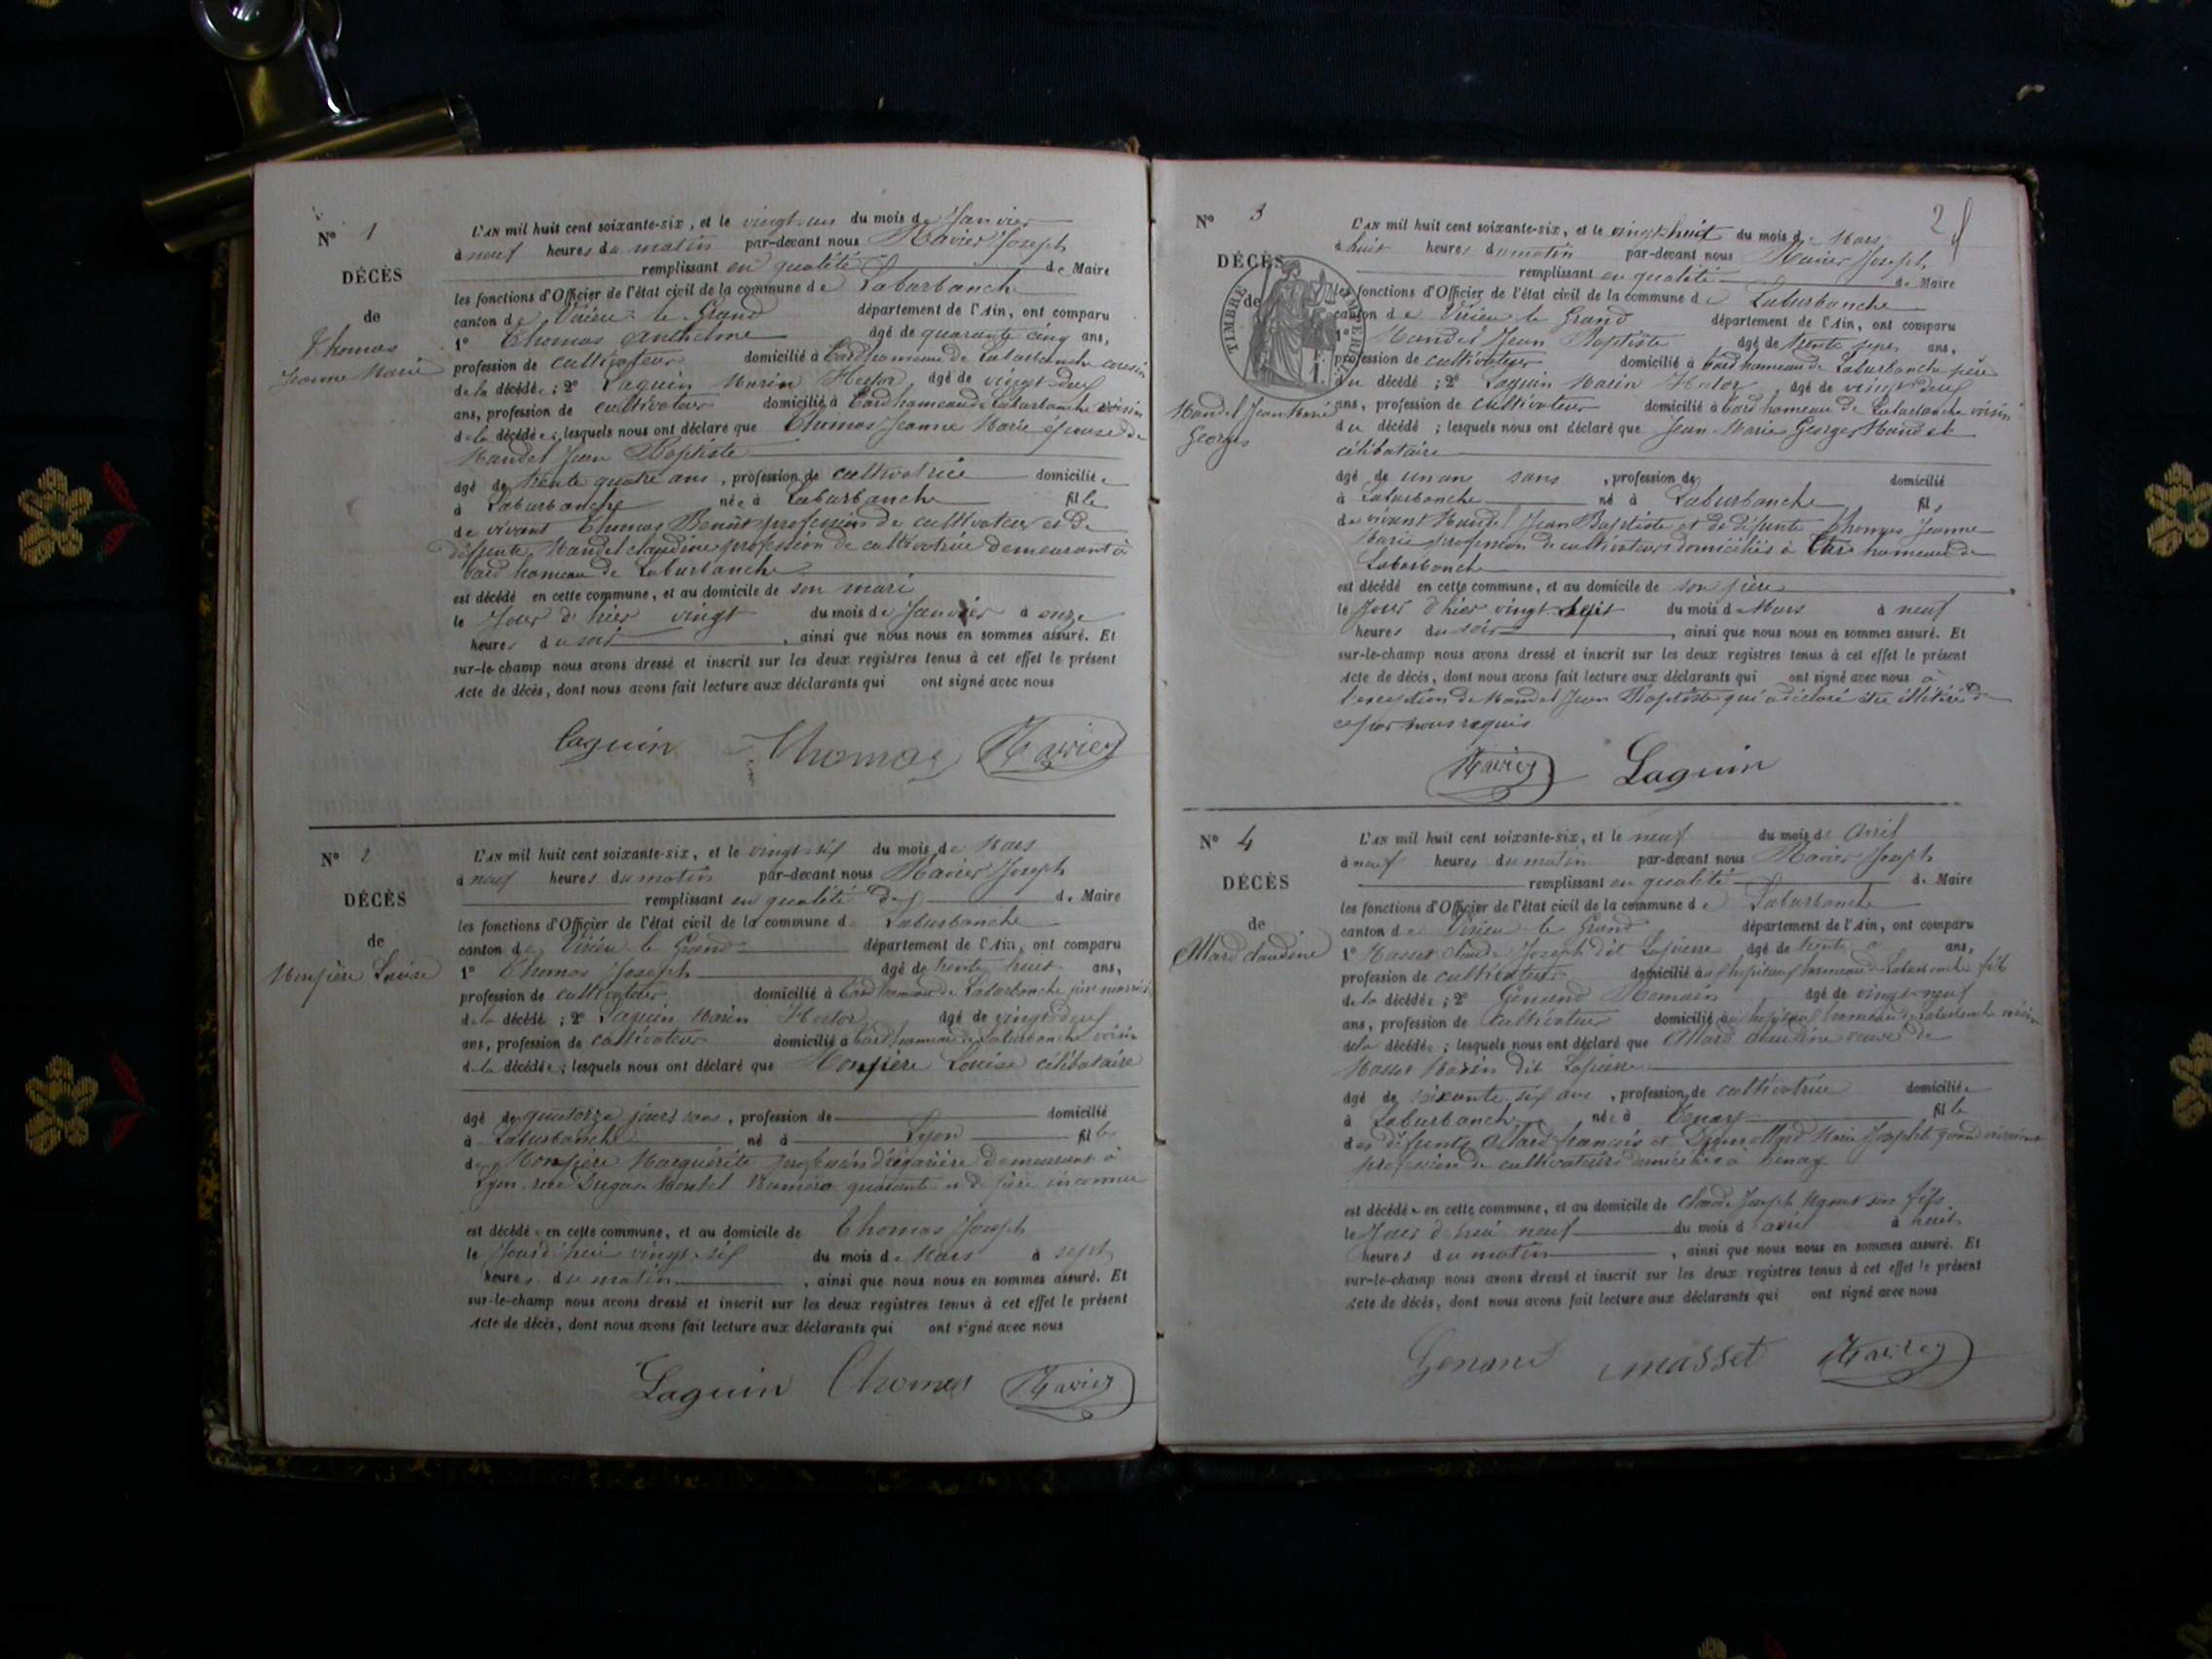 N° 1
DÉCÈS
de
Thomas
Jeanne Marie
L'AN mil huit cent soixante-six, et le vingt-un du mois de Janvier
à neuf heures du matin par-devant nous Joseph
remplissant en qualité de Maire
les fonctions d'Officier de l'état civil de la commune de Laburbanche
canton de Virieu le Grand département de l'Ain, ont comparu
1° Thomas Anthelme âgé de quarante cinq ans,
profession de cultivateur domicilié à hameau de Laburbanche cousin
de la décédée; 2° Laguin Marin Hector âgé de vingt deux
ans, profession de cultivateur domicilié à hameau de Laburbanche voisin
de la décédée; lesquels nous ont déclaré que Thomas Jeanne Marie épouse de
Mandel Jean Baptiste
âgé de trente quatre ans, profession de cultivatrice domiciliée
à Laburbanche née à Laburbanche fille
de vivant Thomas Benoit profession de cultivateur et de
défunte Mandel claudine profession de cultivatrice demeurant à
hameau de Laburbanche
est décédé en cette commune, et au domicile de son mari
le Jour d'hier vingt du mois de Janvier à onze
heures du soir, ainsi que nous nous en sommes assuré. Et
sur-le-champ nous avons dressé et inscrit sur les deux registres tenus à cet effet le présent
Acte de décès, dont nous avons fait lecture aux déclarants qui ont signé avec nous
Laguin Thomas
N° 2
DÉCÈS
de
Louise
L'AN mil huit cent soixante-six, et le vingt-six du mois de Mars
à neuf heures du matin par-devant nous Joseph
remplissant en qualité de Maire
les fonctions d'Officier de l'état civil de la commune de Laburbanche
canton de Virieu le Grand département de l'Ain, ont comparu
1° Thomas Joseph âgé de trente huit ans,
profession de cultivateur domicilié à hameau de Laburbanche père
de la décédé; 2° Laguin Marin Hector âgé de vingt deux
ans, profession de cultivateur domicilié à hameau de Laburbanche voisin
de la décédée; lesquels nous ont déclaré que Louise célibataire
âgé de quatorze jours sans, profession de domicilié
à Laburbanche né à Lyon fille
de Marguérite demeurant à
Lyon rue Numéro quarante et de père inconnu
est décédée en cette commune, et au domicile de Thomas Joseph
le vingt-six du mois de Mars à sept
heures du matin, ainsi que nous nous en sommes assuré. Et
sur-le-champ nous avons dressé et inscrit sur les deux registres tenus à cet effet le présent
Acte de décès, dont nous avons fait lecture aux déclarants qui ont signé avec nous
Laguin Thomas
2
N° 3
DÉCÈS
de
TIMBRE IMPERIAL
Mandel Jean Marie
Georges
L'AN mil huit cent soixante-six, et le vingt-huit du mois de Mars
à huit heures du matin par-devant nous Joseph
remplissant en qualité de Maire
les fonctions d'Officier de l'état civil de la commune de Laburbanche
canton de Virieu le Grand département de l'Ain, ont comparu
1° Mandel Jean Baptiste âgé de trente sept ans,
profession de cultivateur domicilié à hameau de Laburbanche père
du décédé; 2° Laguin Marin Hector, âgé de vingt deux
ans, profession de cultivateur domicilié à hameau de Laburbanche voisin
du décédé; lesquels nous ont déclaré que Jean Marie Georges Mandel
célibataire
âgé de un an sans, profession de domicilié
à Laburbanche né à Laburbanche fils
de vivant Mandel Jean Baptiste et de défunte Thomas Jeanne
Marie profession de cultivateurs domiciliés à hameau de
Laburbanche
est décédé en cette commune, et au domicile de son père
le Jour d'hier vingt sept du mois de Mars à neuf
heures du soir, ainsi que nous nous en sommes assuré. Et
sur-le-champ nous avons dressé et inscrit sur les deux registres tenus à cet effet le présent
Acte de décès, dont nous avons fait lecture aux déclarants qui ont signé avec nous à
l'exception de Mandel Jean Baptiste qui a déclaré être illitéré de
ce par nous requis
Laguin
N° 4
DÉCÈS
de
Allard claudine
L'AN mil huit cent soixante-six, et le neuf du mois de Avril
à neuf heures du matin par-devant nous Joseph
remplissant en qualité de Maire
les fonctions d'Officier de l'état civil de la commune de Laburbanche
canton de Virieu le Grand département de l'Ain, ont comparu
1° Masset claude Joseph dit Lapierre âgé de trente ans,
profession de cultivateur domicilié à hameau de Laburbanche fils
de la décédée; 2° Genand Romain âgé de vingt neuf
ans, profession de cultivateur domicilié à hameau de Laburbanche voisin
de la décédée; lesquels nous ont déclaré que Allard claudine veuve de
Masset Marin dit Lapierre
âgé de soixante six ans, profession de cultivatrice domiciliée
à Laburbanche née à Tenay fille
des défunts Allard françois et Marie
profession de cultivateurs domiciliés à Tenay
est décédée en cette commune, et au domicile de claude Joseph Masset son fils
le neuf du mois d'avril à huit
heures du matin, ainsi que nous nous en sommes assuré. Et
sur-le-champ nous avons dressé et inscrit sur les deux registres tenus à cet effet le présent
Acte de décès, dont nous avons fait lecture aux déclarants qui ont signé avec nous
Genand masset